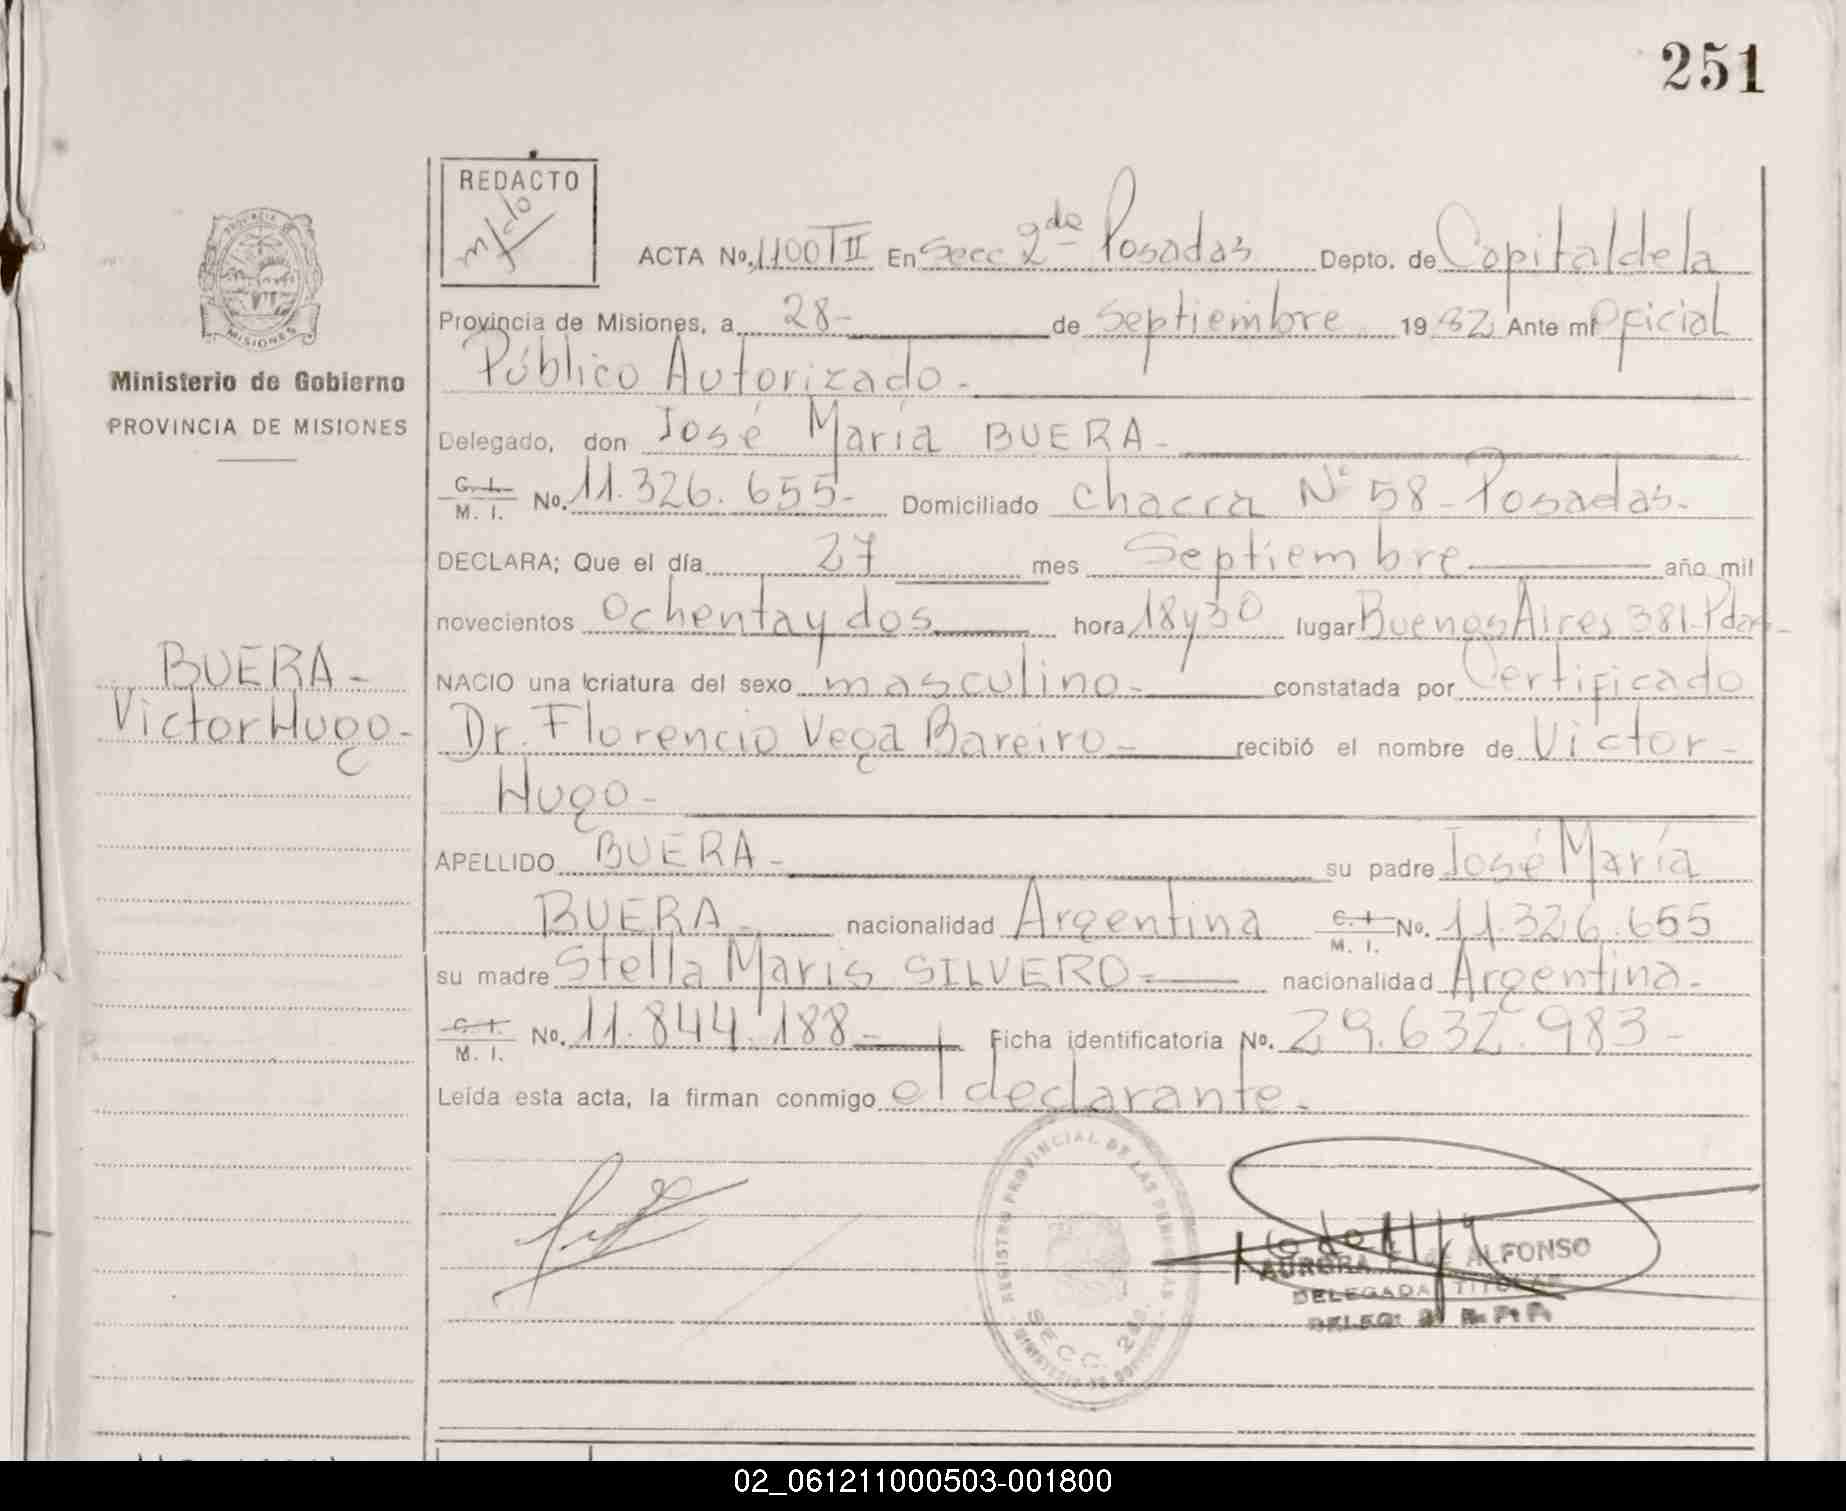 251
REDACTO
ACTA No. 1100 TII En Secc 2da Posadas Depto. de Capital de la
Provincia de Misiones, a 28- de Septiembre 1982 Ante mí Oficial
Público Autorizado-
Delegado, don José María BUERA-
C. I. M. I. No. 11.326.655- Domiciliado Chacra Nº 58-Posadas-
DECLARA; Que el día 27 mes Septiembre año mil
novecientos Ochenta y dos hora 18y30 lugar Buenos Aires 381-Pdas-
NACIO una criatura del sexo masculino- constatada por Certificado
Dr. Florencio Vega Bareiro- recibió el nombre de Victor-
Hugo-
APELLIDO BUERA- su padre José María
BUERA- nacionalidad Argentina C. I. M. I. No. 11.326.655
su madre Stella Maris SILVERO= nacionalidad Argentina-
C. I. M. I. No. 11.844.188- Ficha identificatoria No. 29.632.983-
Leída esta acta, la firman conmigo el declarante-
PROVINCIA
MISIONES
Ministerio de Gobierno
PROVINCIA DE MISIONES
BUERA-
Victor Hugo-
REGISTRO PROVINCIAL DE LAS PERSONAS
SECC. 2da.
AURORA DE ALFONSO
DELEGADA TITULAR
DELEG: 2
02_061211000503-001800